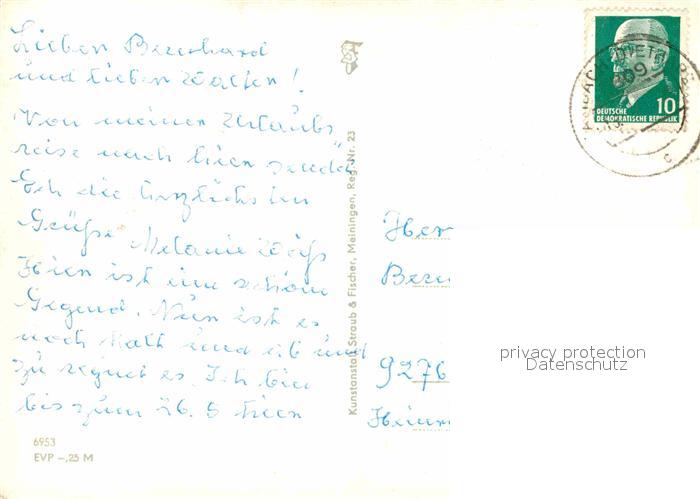 Lieben Bernhard
und lieben Walter!
Von meiner Urlaubs
reise nach hier sendet
Euch die herzlichsten
Grüße Melanie Weiß
Hier ist eine schöne
Gegend. Nur ist es
noch kalt und ab und
zu regnet es. Ich bin
bis zum 26. 5 hier
6953
EVP -,25 M
Kunstanstalt Straub & Fischer, Meiningen, Reg. Nr. 23
DEUTSCHE
DEMOKRATISCHE REPUBLIK
10
Her
Bern
9276
Hein
privacy protection
Datenschutz